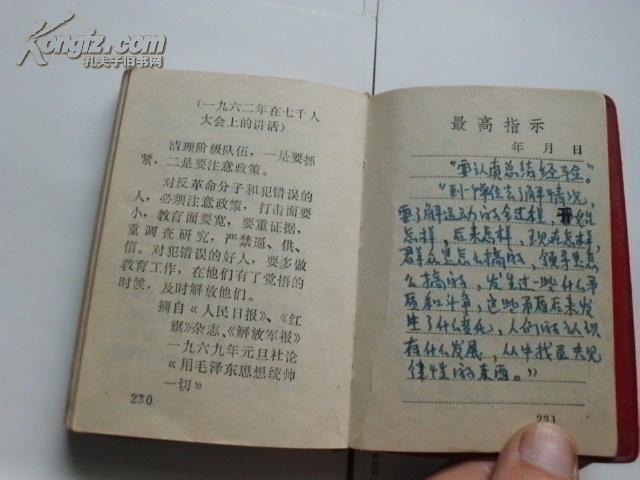 Kongfz.com
孔夫子旧书网
(一九六二年在七千人
大会上的讲话)
清理阶级队伍，一是要抓
紧，二是要注意政策。
对反革命分子和犯错误的
人，必须注意政策，打击面要
小，教育面要宽，要重证据，
重调查研究，严禁逼、供、
信。对犯错误的好人，要多做
教育工作，在他们有了觉悟的
时候，及时解放他们。
摘自《人民日报》、《红
旗》杂志、《解放军报》
一九六九年元旦社论
《用毛泽东思想统帅
一切》
230
最高指示
年 月 日
“要认真总结经验。”
“到一个单位去了解情况，
要了解运动的全过程，开始
怎样，后来怎样，现在怎样，
群众是怎么搞的，领导是怎
么搞的，发生过一些什么矛
盾和斗争，这些矛盾后来发
生了什么变化，人们的认识
有什么发展，从中找出规
律性的东西。”
231